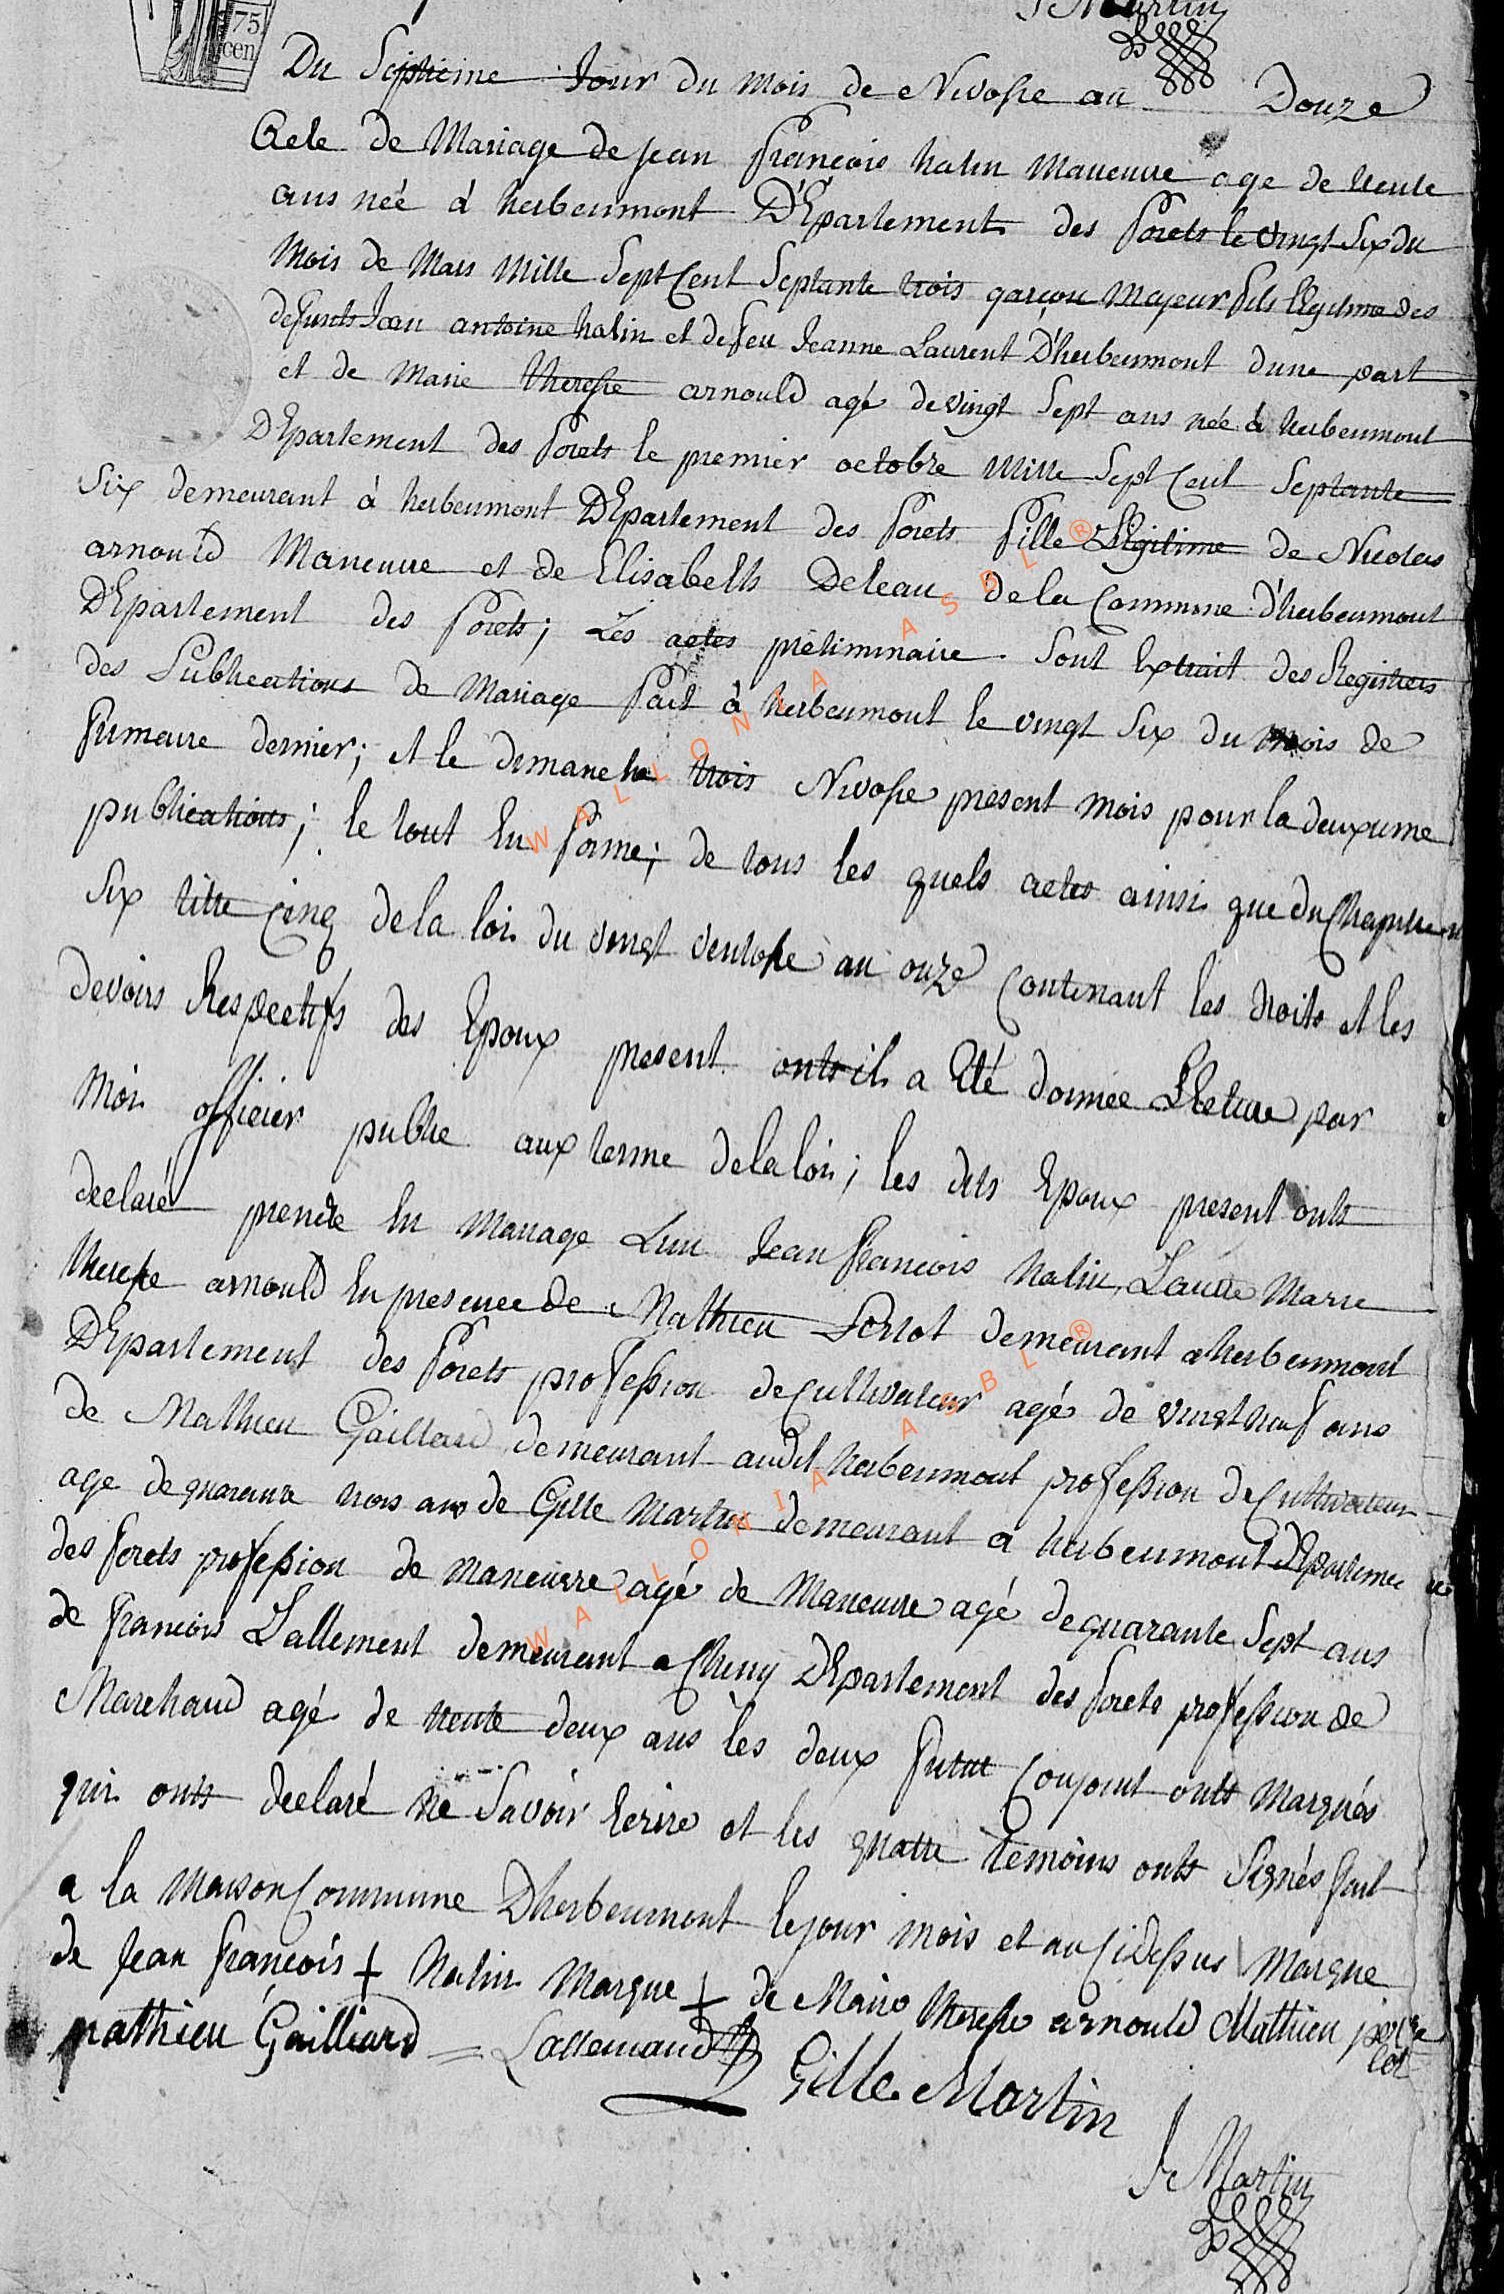 J Martin
75
cen
Du Septieme Jour du mois de Nivose an Douze
Acte de Mariage de jean francois halin Maneuvre age de trente
ans née à herbeumont DEpartement des forets le vingt Six du
Mois de Mars Mille Sept Cent Septante trois garçon Majeur fils legitime des
defunts Jean antoine halin et de feu Jeanne Laurent D'herbeumont dune part
et de Marie therese arnould agé de vingt Sept ans née à herbeumont
DEpartement des forets le premier octobre Mille Sept Cent Septante
Six demeurant à herbeumont DEpartement des forets fille Legitime de Nicolas
arnould Maneuvre et de Elisabeth Deleau de la Commune d'herbeumont
DEpartement des forets; Les actes preliminaire Sont Extrait des Registres
des Publications de Mariage fait à herbeumont le vingt Six du Mois de
frimeure dernier; et le dimanche trois Nivose present mois pour la deuxieme
publications; le tout En forme; de tous les quels actes ainsi que du Chapitre
Six titre Cinq de la loi du vingt ventose an onze Contenant les droits et les
devoirs Respectifs des Epoux present onts il a Eté donnée Lecture par
Moi officier public aux terme de la loi; les dits Epoux present onts
declaré prendre En Mariage Lun Jean francois halin, Lautre Marie
therese arnould En presence de Mathieu Porlot demeurant a herbeumont
DEpartement des forets profession de Cultivateur agé de vingt neuf ans
de Mathieu Gaillard demeurant audit herbeumont profession de Cultivateur
age de quarante trois ans de Gille Martin demeurant a herbeumont DEpartement
des forets profession de Maneuvre agé de Maneuvre agé de quarante Sept ans
de francois Lallement demeurant a Chiny DEpartement des forets profession de
Marchand agé de trente deux ans les deux futur Conjoint onts Marqués
qui onts declaré ne Savoir Ecrire et les quatre temoins onts Signés fait
a la Maison Commune Dherbeumont le jour mois et an Cidessus Marque
de Jean françois + halin Marque + de Marie therese arnould Mathieu porre
lot
mathieu Gailliard Lallemand Gille Martin
J Martin
WALLONIA ASBL ®
WALLONIA ASBL ®